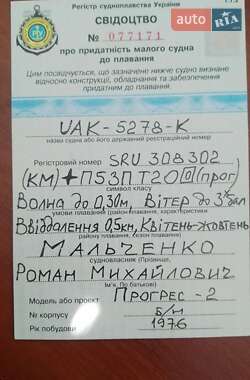 Регістр судноплавства України
СВІДОЦТВО
№ 077171
про придатність малого судна
до плавання
Цим посвідчується, що зазначене нижче судно визнано
відносно конструкції, обладнання та забезпечення
придатним до плавання.
UAK-5278-K
назва судна або його державний реєстраційний номер
Регістровий номер SRU 308302
(КМ) П53ПТ20 (прог)
символ класу
Волна до 0,30м, Вітер до 3х бал
умови плавання (район плавання, характеристики
Ввіддалення 0,5км, Квітень-жовтень
району плавання, сезон плавання)
Мальченко
судновласник (Прізвище,
Роман Михайлович
Ім'я, По батькові)
Модель або проект Прогрес-2
№ корпусу Б/Н
Рік побудови 1976
AUTO
RIA